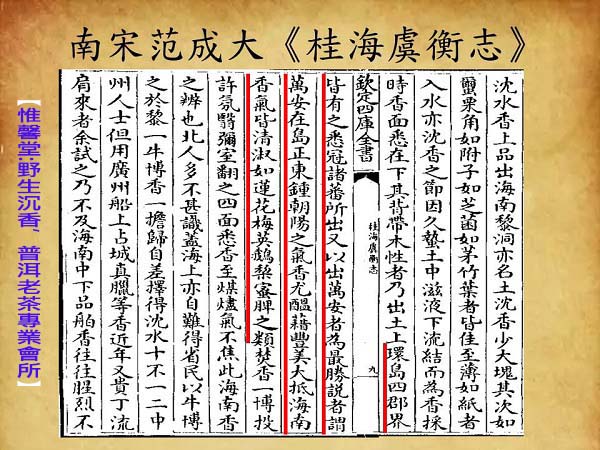 南宋范成大《桂海虞衡志》
沈水香上品出海南黎洞亦名土沈香少大塊其次如
蠒栗角如附子如芝菌如茅竹葉者皆佳至薄如紙者
入水亦沈香之節因久蟄土中滋液下流結而為香採
時香面悉在下其背帶木性者乃出土上環島四郡界
欽定四庫全書
桂海虞衡志
九
皆有之悉冠諸蕃所出又以出萬安者為最勝說者謂
萬安在島正東鍾朝陽之氣香尤醞藉豐美大抵海南
香氣皆清淑如蓮花梅英鵝棃蜜脾之類焚香一博投
許氛翳彌室翻之四面悉香至煤燼氣不焦此海南香
之辨也北人多不甚識蓋海上亦自難得省民以牛博
之於黎一牛博香一擔歸自差擇得沈水十不一二中
州人士但用廣州船上占城真臘等香近年又貴丁流
眉來者余試之乃不及海南中下品舶香往往腥烈不
【惟馨堂:野生沉香、普洱老茶專業會所】